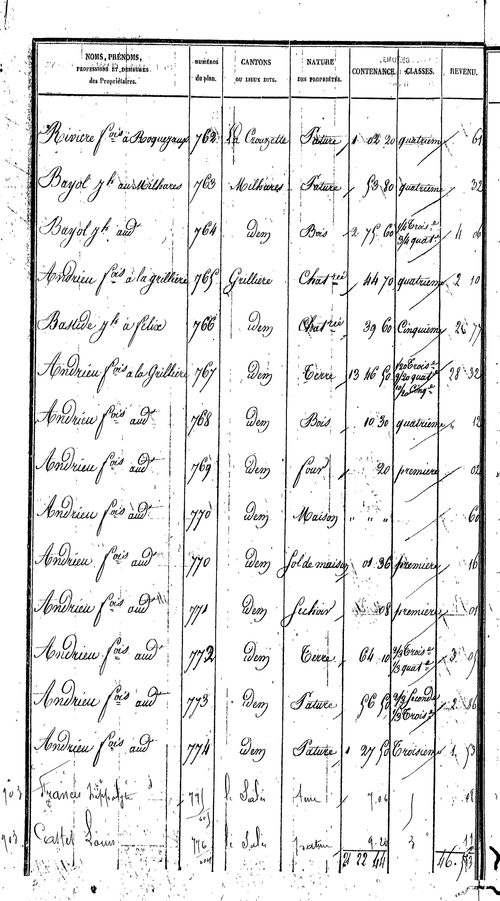 NOMS, PRÉNOMS, PROFESSIONS ET DEMEURES des Propriétaires. NUMÉROS du plan. CANTONS OU LIEUX DITS. NATURE DES PROPRIÉTÉS. CONTENANCE. CLASSES. REVENU.
Riviere fois à Roquezaux 762 La Crouzette Pature 1 02 20 quatrieme 61
Bayol jh aux Milhares 763 Milhares Pature 53 80 quatrieme 32
Bayol jh aud 764 idem Bois 2 75 60 1/4 Trois e 3/4 quat e 4 06
Andrieu fois à la grilliere 765 Grilliere Chat rée 44 70 quatrieme 2 10
Bastide jh à felix 766 idem Chat rée 39 60 Cinquieme 77
Andrieu fois à la Grilliere 767 idem Terre 13 46 50 1/20 Trois e 9/20 quat e 10/20 Cinq e 28 32
Andrieu fois aud 768 idem Bois 10 30 quatrieme 12
Andrieu fois aud 769 idem four 20 premiere 02
Andrieu fois aud 770 idem Maison " " " 60
Andrieu fois aud 770 idem Sol de maison 01 36 premiere 16
Andrieu fois aud 771 idem Sechoir 08 premiere 01
Andrieu fois aud 772 idem Terre 64 10 2/3 Trois e 1/3 quat e 3 05
Andrieu fois aud 773 idem Pature 56 50 2/3 Seconde 1/3 Trois e 2 86
Andrieu fois aud 774 idem Pature 1 27 50 Troisieme 1 53
903 Francès hippolyte 775 le Salès 7.06
903 Castel Louis 776 le Salès pature 9.20 3
21 22 44 46.